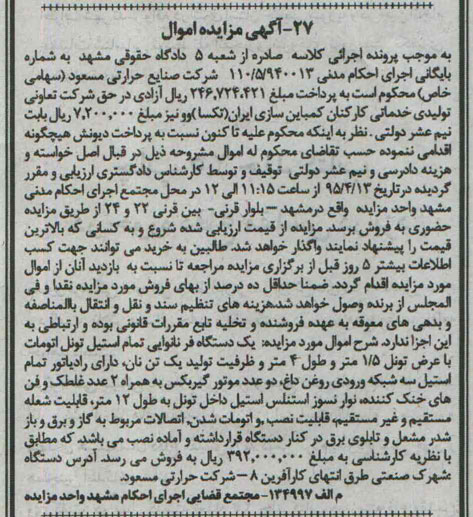 ۲۷-آگهی مزایده اموال
به موجب پرونده اجرائی کلاسه صادره از شعبه ۵ دادگاه حقوقی مشهد به شماره
بایگانی اجرای احکام مدنی ۱۱۰/۵/۹۴۰۰۱۳ شرکت صنایع حرارتی مسعود (سهامی
خاص) محکوم است به پرداخت مبلغ ۲۴۶,۷۲۴,۴۲۱ ریال آزادی در حق شرکت تعاونی
تولیدی خدماتی کارکنان کمباین سازی ایران(تکسا) وو نیز مبلغ ۷,۲۰۰,۰۰۰ ریال بابت
نیم عشر دولتی . نظر به اینکه محکوم علیه تا کنون نسبت به پرداخت دیونش هیچگونه
اقدامی ننموده حسب تقاضای محکوم له اموال مشروحه ذیل در قبال اصل خواسته و
هزینه دادرسی و نیم عشر دولتی توقیف و توسط کارشناس دادگستری ارزیابی و مقرر
گردیده درتاریخ ۹۵/۴/۱۳ از ساعت ۱۱:۱۵ الی ۱۲ در محل مجتمع اجرای احکام مدنی
مشهد واحد مزایده واقع درمشهد – بلوار قرنی- بین قرنی ۲۲ و ۲۴ از طریق مزایده
حضوری به فروش برسد. مزایده از قیمت ارزیابی شده شروع و به کسانی که بالاترین
قیمت را پیشنهاد نمایند واگذار خواهد شد. طالبین به خرید می توانند جهت کسب
اطلاعات بیشتر ۵ روز قبل از برگزاری مزایده مراجعه تا نسبت به بازدید آنان از اموال
مورد مزایده اقدام گردد. ضمنا حداقل ده درصد از بهای فروش مورد مزایده نقدا و فی
المجلس از برنده وصول خواهد شد،هزینه های تنظیم سند و نقل و انتقال بالمناصفه
و بدهی های معوقه به عهده فروشنده و تخلیه تابع مقررات قانونی بوده و ارتباطی به
این اجرا ندارد. شرح اموال مورد مزایده: یک دستگاه فر نانوایی تمام استیل تونل اتومات
با عرض تونل ۱/۵ متر و طول ۴ متر و ظرفیت تولید یک تن نان، دارای رادیاتور تمام
استیل سه شبکه ورودی روغن داغ، دو عدد موتور گیربکس به همراه ۲ عدد غلطک و فن
های خنک کننده، نوار نسوز استنلس استیل داخل تونل به طول ۱۲ متر، قابلیت شعله
مستقیم و غیر مستقیم، قابلیت نصب و اتومات شدن، اتصالات مربوط به گاز و برق و باز
شدر مشعل و تابلوی برق در کنار دستگاه قرارداشته و آماده نصب می باشد. که مطابق
با نظریه کارشناسی به مبلغ ۳۹۲,۰۰۰,۰۰۰ ریال به فروش می رسد. آدرس دستگاه
:شهرک صنعتی طرق انتهای کارآفرین ۸ – شرکت حرارتی مسعود.
م الف ۱۳۴۹۹۷- مجتمع قضایی اجرای احکام مشهد واحد مزایده